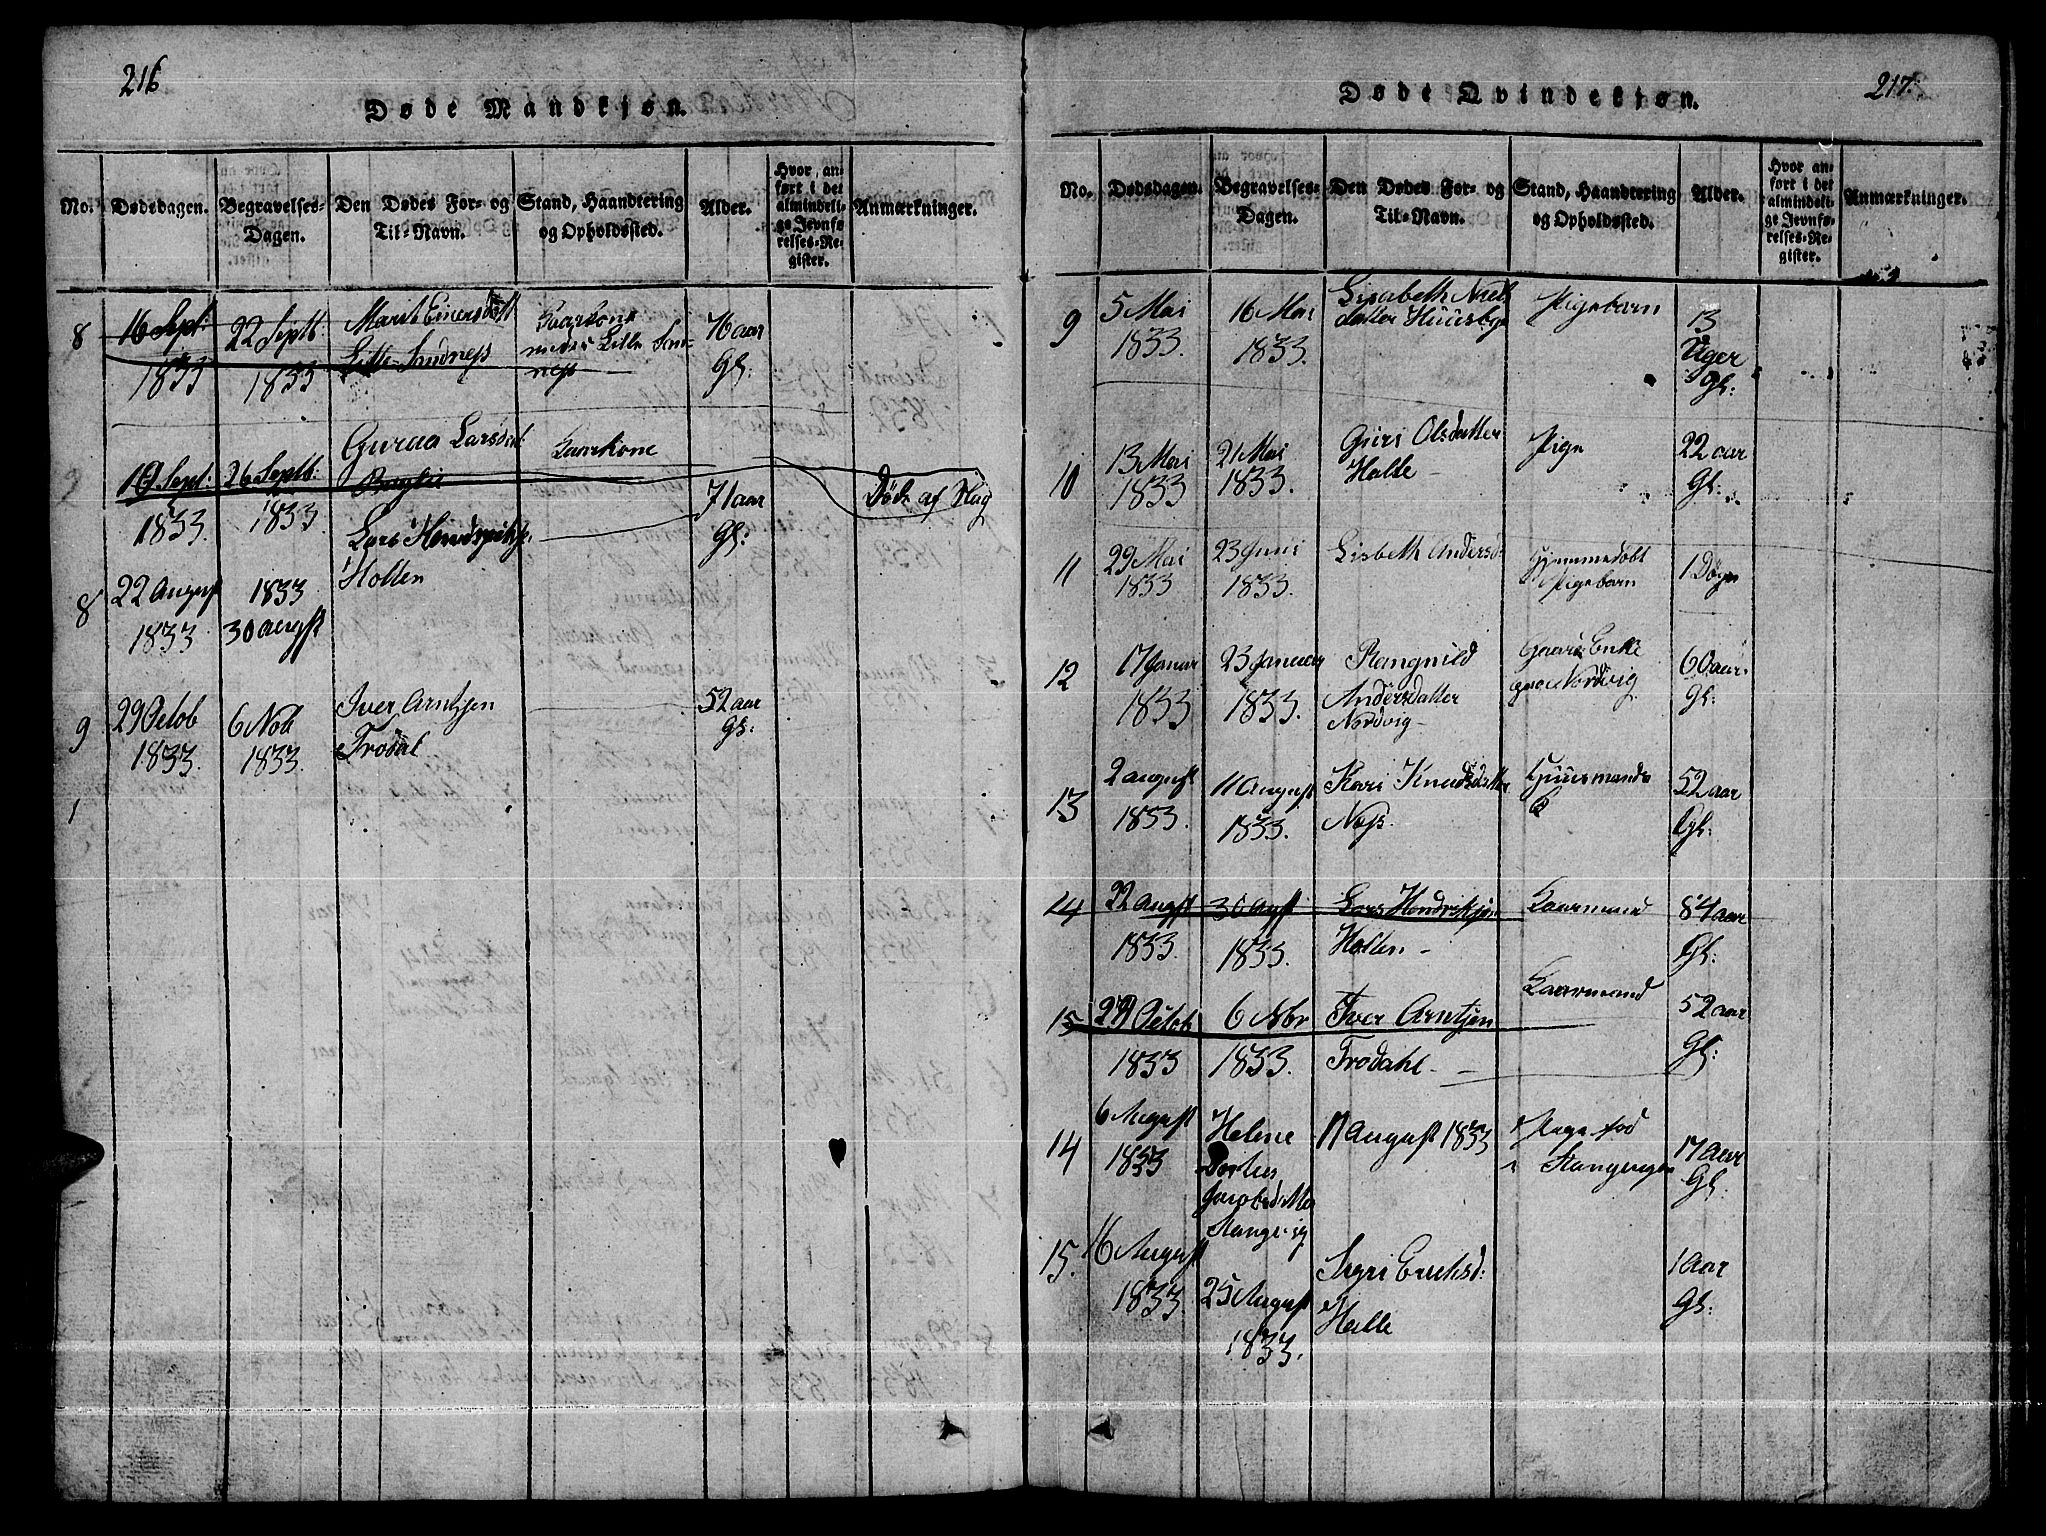 216
Døde Mandkjøn.
No.
Dødsdagen.
Begravelses-
Dagen.
Den Dødes For- og
Til-Navn.
Stand, Haandtering
og Opholdssted.
Alder.
Hvor an-
ført i det
almindeli-
ge Jevnfø-
relses-Re-
gister.
Anmærkninger.
8
16 Sept:
1833
22 Septb:
1833
Marit Einersdatt
Lille Sandnes
Kaarkone
neder Lille San-
nes
76 aar
Gl:
9
19 Sept:
1833.
26 Septb:
1833
Guraa Larsdat
Kaarkone
71 aar
Gl:
Døde af Slag
8
22 August
1833
1833
30 Augst
Lars Hendrichs.
Holten
9
29 Octob
1833.
6 Nob
1833.
Iver Arntsen
Trodal
52 aar
Gl:
1
217.
Døde Qvindekjøn.
No.
Dødsdagen.
Begravelses-
Dagen.
Den Dødes For- og
Til-Navn.
Stand, Haandtering
og Opholdssted.
Alder.
Hvor an-
ført i det
almindeli-
ge Jevnfø-
relses-Re-
gister.
Anmærkninger.
9
5 Mai
1833.
16 Mai
1833.
Lisabeth Niels
datter Huusbye
Pigebarn
13
Uger
gl:
10
13 Mai
1833
21 Mai
1833.
Guri Olsdatter
Halle
Pige
22 aar
Gl:
11
29 Mai
1833
23 Juni
1833.
Lisbeth Andersd
Hjemmedøbt
Pigebarn
1 Døgn
12
17 Januar
1833
23 Januar
1833.
Rangnild
Andersdatter
Nordvig
Gaard Enke
paa Nordvig
60 aar
gl:
13
2 august
1833.
11 August
1833.
Kari Knudsdatter
Næss.
Huusmands
52 aar
gl:
14
22 Augst
1833.
30 Agst
1833.
Lars Hendriksen
Holten
Kaarmand
84 aar
Gl:
15
29 Octob
1833
6 Nbr
1833.
Iver Arntsen
Trodahl
Kaarmand
52 aar
Gl:
14
6 August
1833
Helene
Dorthea
Jacobsdatter
Stangvig
17 August 1833
Pige fød
i Stangvigen
17 Aar
Gl:
15.
16 August
1833
25 August
1833.
Sigri Erichsd:
Halle
1 Aar
Gl: